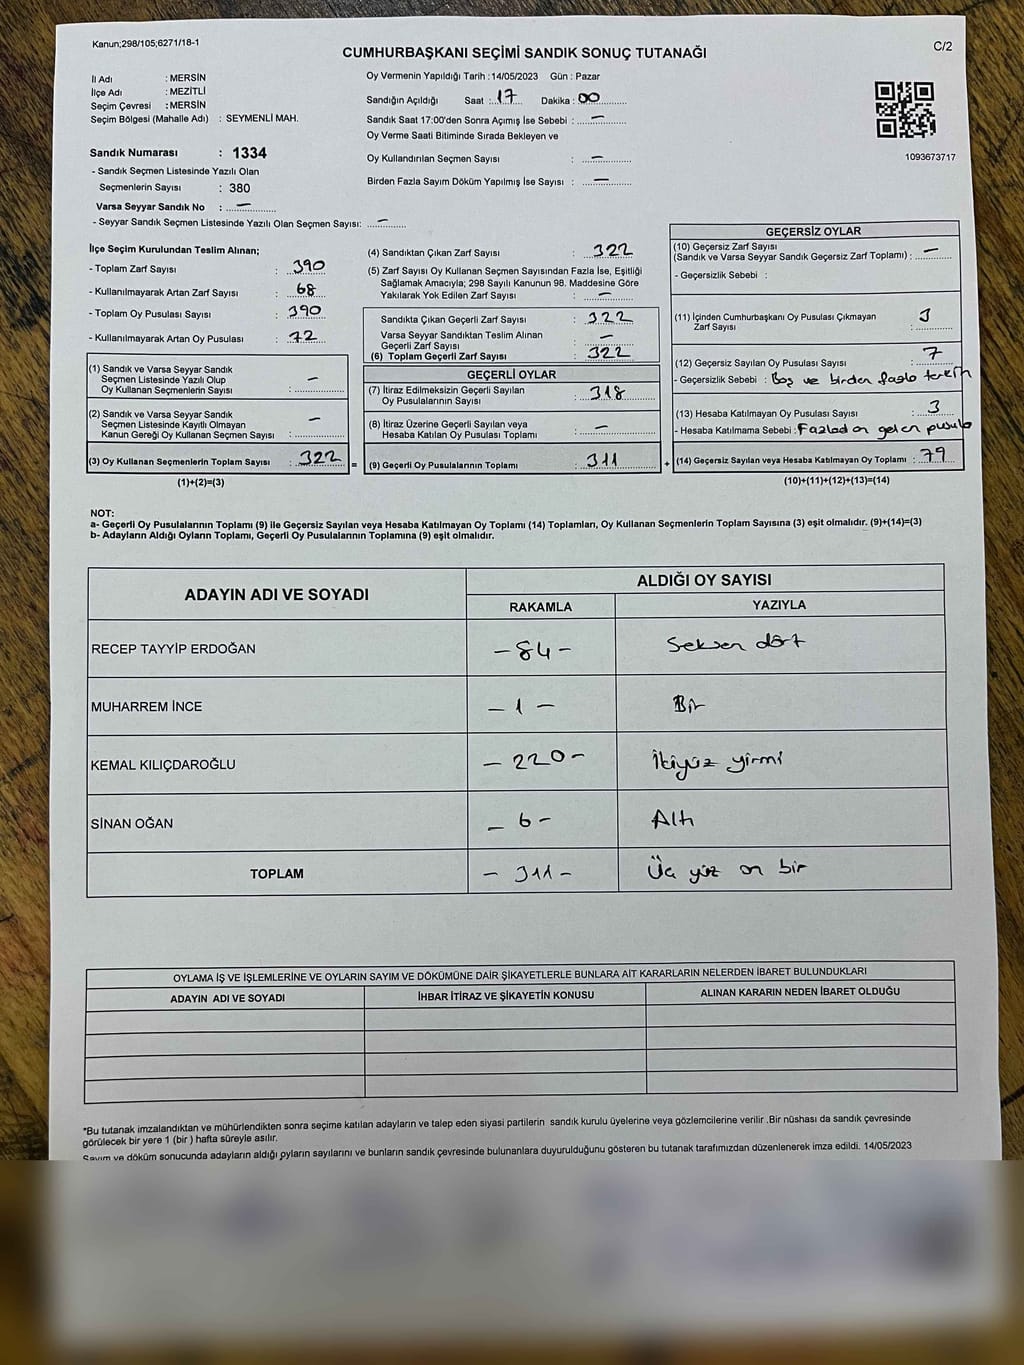 Kanun;298/105;6271/18-1
C/2
CUMHURBAŞKANI SEÇİMİ SANDIK SONUÇ TUTANAĞI
İl Adı : MERSİN
İlçe Adı : MEZİTLİ
Seçim Çevresi : MERSİN
Seçim Bölgesi (Mahalle Adı) : SEYMENLİ MAH.
Sandık Numarası : 1334
- Sandık Seçmen Listesinde Yazılı Olan
Seçmenlerin Sayısı : 380
Varsa Seyyar Sandık No : —
- Seyyar Sandık Seçmen Listesinde Yazılı Olan Seçmen Sayısı: —
Oy Vermenin Yapıldığı Tarih : 14/05/2023 Gün : Pazar
Sandığın Açıldığı Saat : 17 Dakika : 00
Sandık Saat 17:00'den Sonra Açımış İse Sebebi : —
Oy Verme Saati Bitiminde Sırada Bekleyen ve
Oy Kullandırılan Seçmen Sayısı : —
Birden Fazla Sayım Döküm Yapılmış İse Sayısı : —
1093673717
İlçe Seçim Kurulundan Teslim Alınan;
- Toplam Zarf Sayısı : 390
- Kullanılmayarak Artan Zarf Sayısı : 68
- Toplam Oy Pusulası Sayısı : 390
- Kullanılmayarak Artan Oy Pusulası : 72
(1) Sandık ve Varsa Seyyar Sandık
Seçmen Listesinde Yazılı Olup
Oy Kullanan Seçmenlerin Sayısı : —
(2) Sandık ve Varsa Seyyar Sandık
Seçmen Listesinde Kayıtlı Olmayan
Kanun Gereği Oy Kullanan Seçmen Sayısı : —
(3) Oy Kullanan Seçmenlerin Toplam Sayısı : 322
(1)+(2)=(3)
(4) Sandıktan Çıkan Zarf Sayısı : 322
(5) Zarf Sayısı Oy Kullanan Seçmen Sayısından Fazla İse, Eşitliği
Sağlamak Amacıyla; 298 Sayılı Kanunun 98. Maddesine Göre
Yakılarak Yok Edilen Zarf Sayısı : —
Sandıkta Çıkan Geçerli Zarf Sayısı : 322
Varsa Seyyar Sandıktan Teslim Alınan
Geçerli Zarf Sayısı : —
(6) Toplam Geçerli Zarf Sayısı : 322
GEÇERLİ OYLAR
(7) İtiraz Edilmeksizin Geçerli Sayılan
Oy Pusulalarının Sayısı : 318
(8) İtiraz Üzerine Geçerli Sayılan veya
Hesaba Katılan Oy Pusulası Toplamı : —
= (9) Geçerli Oy Pusulalarının Toplamı : 311 +
GEÇERSİZ OYLAR
(10) Geçersiz Zarf Sayısı
(Sandık ve Varsa Seyyar Sandık Geçersiz Zarf Toplamı) : —
- Geçersizlik Sebebi :
(11) İçinden Cumhurbaşkanı Oy Pusulası Çıkmayan
Zarf Sayısı : 3
(12) Geçersiz Sayılan Oy Pusulası Sayısı : 7
- Geçersizlik Sebebi : Boş ve birden fazla tercih
(13) Hesaba Katılmayan Oy Pusulası Sayısı : 3
- Hesaba Katılmama Sebebi : Fazladan gelen pusula
(14) Geçersiz Sayılan veya Hesaba Katılmayan Oy Toplamı : 79
(10)+(11)+(12)+(13)=(14)
NOT:
a- Geçerli Oy Pusulalarının Toplamı (9) ile Geçersiz Sayılan veya Hesaba Katılmayan Oy Toplamı (14) Toplamları, Oy Kullanan Seçmenlerin Toplam Sayısına (3) eşit olmalıdır. (9)+(14)=(3)
b- Adayların Aldığı Oyların Toplamı, Geçerli Oy Pusulalarının Toplamına (9) eşit olmalıdır.
ADAYIN ADI VE SOYADI
ALDIĞI OY SAYISI
RAKAMLA YAZIYLA
RECEP TAYYİP ERDOĞAN - 84 - Seksen dört
MUHARREM İNCE - 1 - Bir
KEMAL KILIÇDAROĞLU - 220 - İkiyüz yirmi
SİNAN OĞAN - 6 - Altı
TOPLAM - 311 - Üç yüz on bir
OYLAMA İŞ VE İŞLEMLERİNE VE OYLARIN SAYIM VE DÖKÜMÜNE DAİR ŞİKAYETLERLE BUNLARA AİT KARARLARIN NELERDEN İBARET BULUNDUKLARI
ADAYIN ADI VE SOYADI İHBAR İTİRAZ VE ŞİKAYETİN KONUSU ALINAN KARARIN NEDEN İBARET OLDUĞU
*Bu tutanak imzalandıktan ve mühürlendikten sonra seçime katılan adayların ve talep eden siyasi partilerin sandık kurulu üyelerine veya gözlemcilerine verilir .Bir nüshası da sandık çevresinde
görülecek bir yere 1 (bir ) hafta süreyle asılır.
Sayım ve döküm sonucunda adayların aldığı oyların sayılarını ve bunların sandık çevresinde bulunanlara duyurulduğunu gösteren bu tutanak tarafımızdan düzenlenerek imza edildi. 14/05/2023